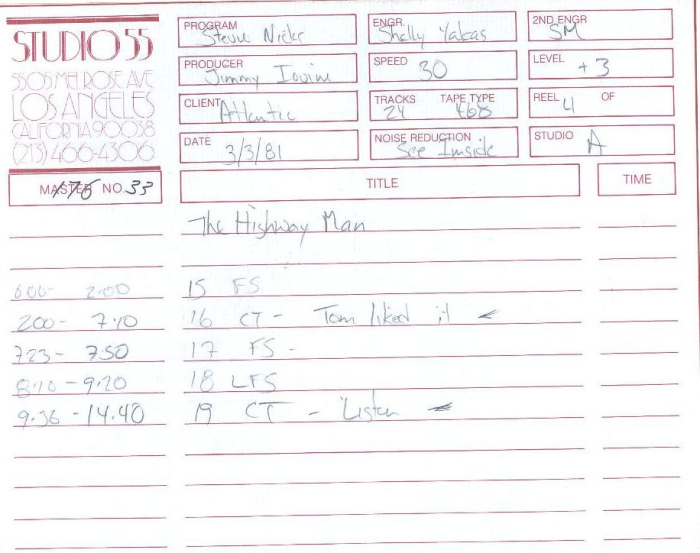 STUDIO 55
5505 MELROSE AVE
LOS ANGELES
CALIFORNIA 90038
(213) 466-4306
PROGRAM Stevie Nicks
ENGR. Shelly Yakas
2ND ENGR SM
PRODUCER Jimmy Iovine
SPEED 30
LEVEL +3
CLIENT Atlantic
TRACKS 24 TAPE TYPE 468
REEL 4 OF
DATE 3/3/81
NOISE REDUCTION See Inside
STUDIO A
MASTER NO. 33
TITLE
TIME
The Highway Man
000- 2:00 15 FS
200- 7:10 16 CT - Tom liked it
723- 750 17 FS -
8:10 - 9:20 18 LFS
9.36 - 14.40 19 CT - Listen